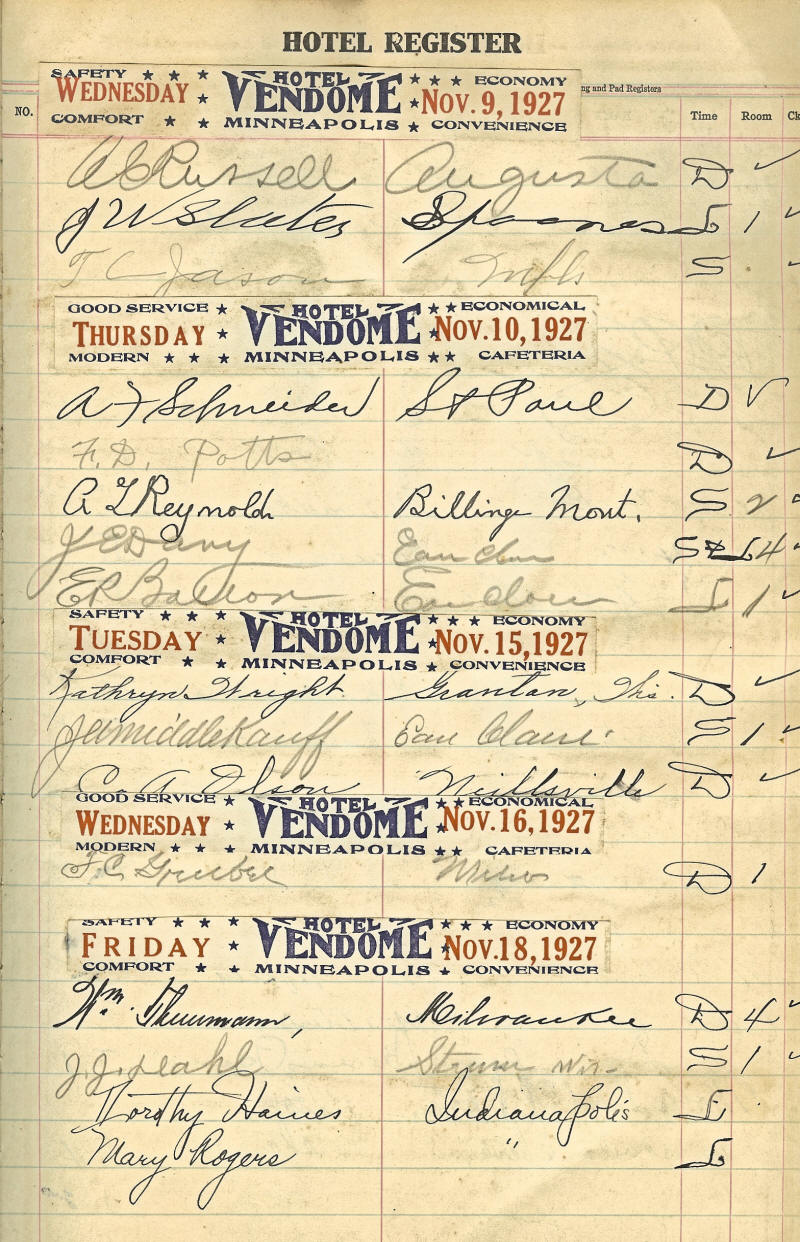 HOTEL REGISTER
SAFETY HOTEL ECONOMY
WEDNESDAY VENDOME Nov. 9, 1927
COMFORT MINNEAPOLIS CONVENIENCE
ng and Pad Registers
NO. Time Room Ck
A C Russell Augusta D ✓
J W Slater L 1 ✓
T C Jason Mpls S ✓
GOOD SERVICE HOTEL ECONOMICAL
THURSDAY VENDOME Nov. 10, 1927
MODERN MINNEAPOLIS CAFETERIA
A F Schneider St Paul D ✓
F. D. Potts D ✓
A L Reynolds Billings Mont. S 2 ✓
J E Davy Eau Claire L 4 ✓
E R Eau Claire L 1 ✓
SAFETY HOTEL ECONOMY
TUESDAY VENDOME Nov. 15, 1927
COMFORT MINNEAPOLIS CONVENIENCE
Kathryn Wright Granton, Wis. D ✓
J A Middlekauff Eau Claire S 1 ✓
C. A Olson Neillsville D ✓
GOOD SERVICE HOTEL ECONOMICAL
WEDNESDAY VENDOME Nov. 16, 1927
MODERN MINNEAPOLIS CAFETERIA
F. C. D 1
SAFETY HOTEL ECONOMY
FRIDAY VENDOME Nov. 18, 1927
COMFORT MINNEAPOLIS CONVENIENCE
Wm. Thurmann, Milwaukee D 4 ✓
J. J. Dahl Strum Wis- S 1 ✓
Dorothy Haines Indianapolis L
Mary Rogers " L